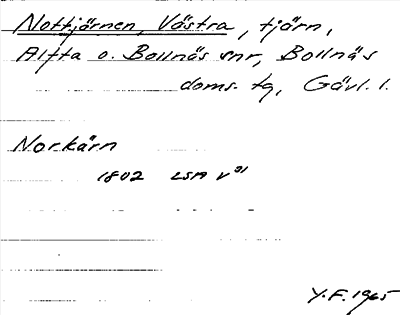 Nottjärnen, Västra, tjärn,
Alfta o. Bollnäs snr, Bollnäs
doms. tg, Gävl. l.
Norkärn
1802 LSA V91
Y.F. 1965